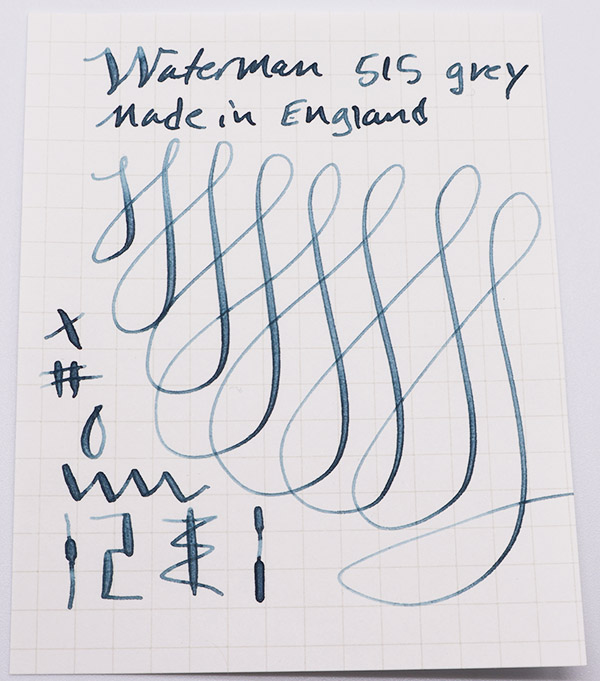 Waterman 515 grey
Made in England